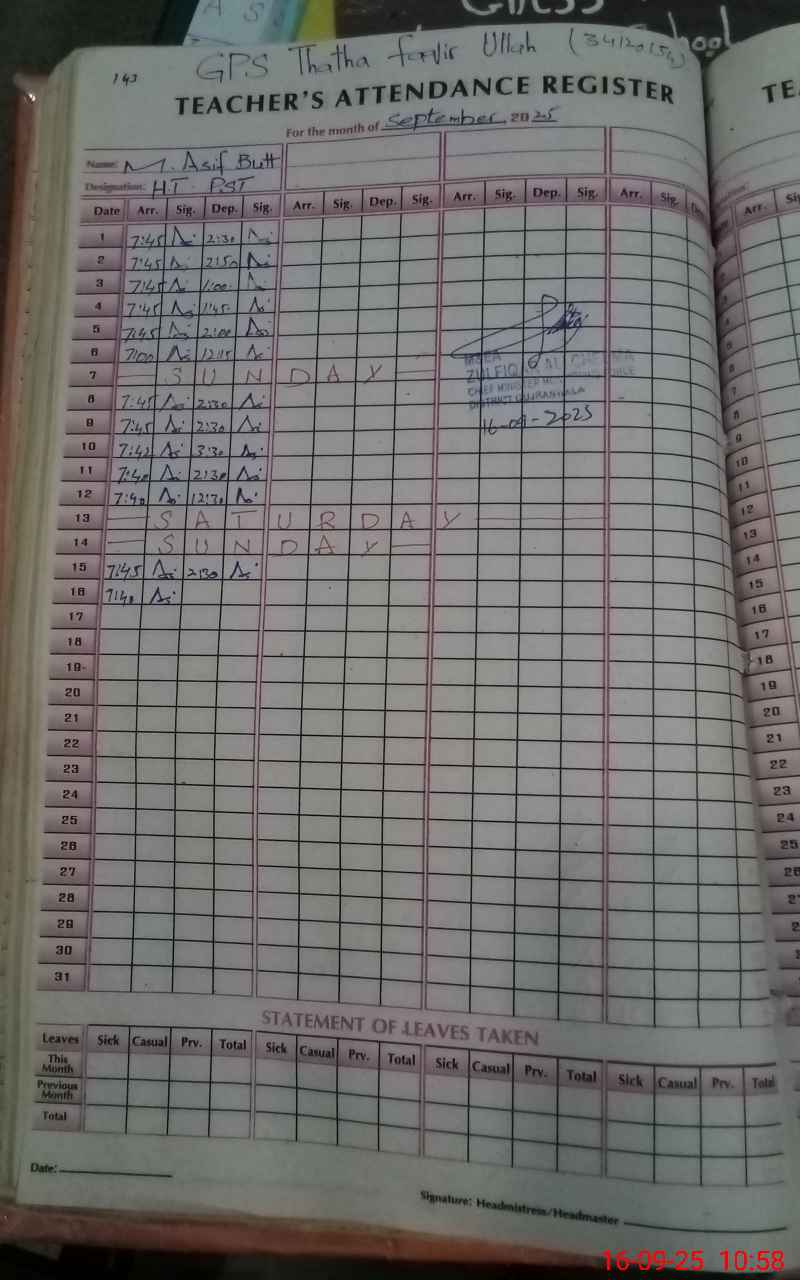 A S
School
143
GPS Thatha
Ullah
TEACHER'S ATTENDANCE REGISTER
For the month of September 2025
Name: M. Asif Butt
Designation: HT PST
Date Arr. Sig. Dep. Sig. Arr. Sig. Dep. Sig. Arr. Sig. Dep. Sig. Arr. Sig.
1 7:45 2:30
2 7:45 2:50
3 7:45 1:00
4 7:45 1:45
5 7:45 2:00
6 7:00 12:15
7 SUNDAY
8 7:45 2:30
9 7:45 2:30
10 7:42 3:30
11 7:40 2:30
12 7:40 12:30
13 SATURDAY
14 SUNDAY
15 7:45 2:30
16 7:40
17
18
19
20
21
22
23
24
25
26
27
28
29
30
31
MBEA
CHIEF MINISTER
DISTRICT GUJRANWALA
16-09-2025
STATEMENT OF LEAVES TAKEN
Leaves Sick Casual Prv. Total Sick Casual Prv. Total Sick Casual Prv. Total Sick Casual Prv. Total
This Month
Previous Month
Total
Date:
Signature: Headmistress/Headmaster
TE
Arr.
8
9
10
11
12
13
14
15
16
17
18
19
20
21
22
23
24
25
16-09-25 10:58